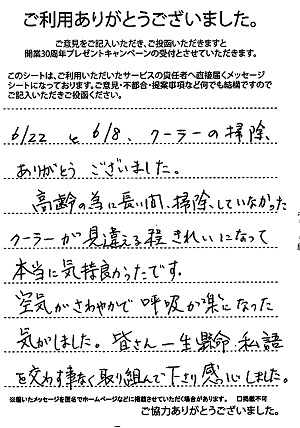 ご利用ありがとうございました。
ご意見をご記入いただき、ご投函いただきますと
開業30周年プレゼントキャンペーンの受付とさせていただきます。
このシートは、ご利用いただいたサービスの責任者へ直接届くメッセージ
シートになっております。ご意見・不都合・提案事項など何でも結構ですので
ご記入いただきご投函ください。
6/22 と 6/8、クーラーの掃除、
ありがとう ございました。
高齢の為に長い間、掃除していなかった
クーラーが見違える程きれいになって
本当に気持良かったです。
空気がさわやかで 呼吸が楽になった
気がしました。皆さん一生懸命、私語
を交わす事なく取り組んで下さり感心しました。
※書いたメッセージを匿名でホームページなどに掲載させていただく場合があります。 □掲載不可
ご協力ありがとうございました。